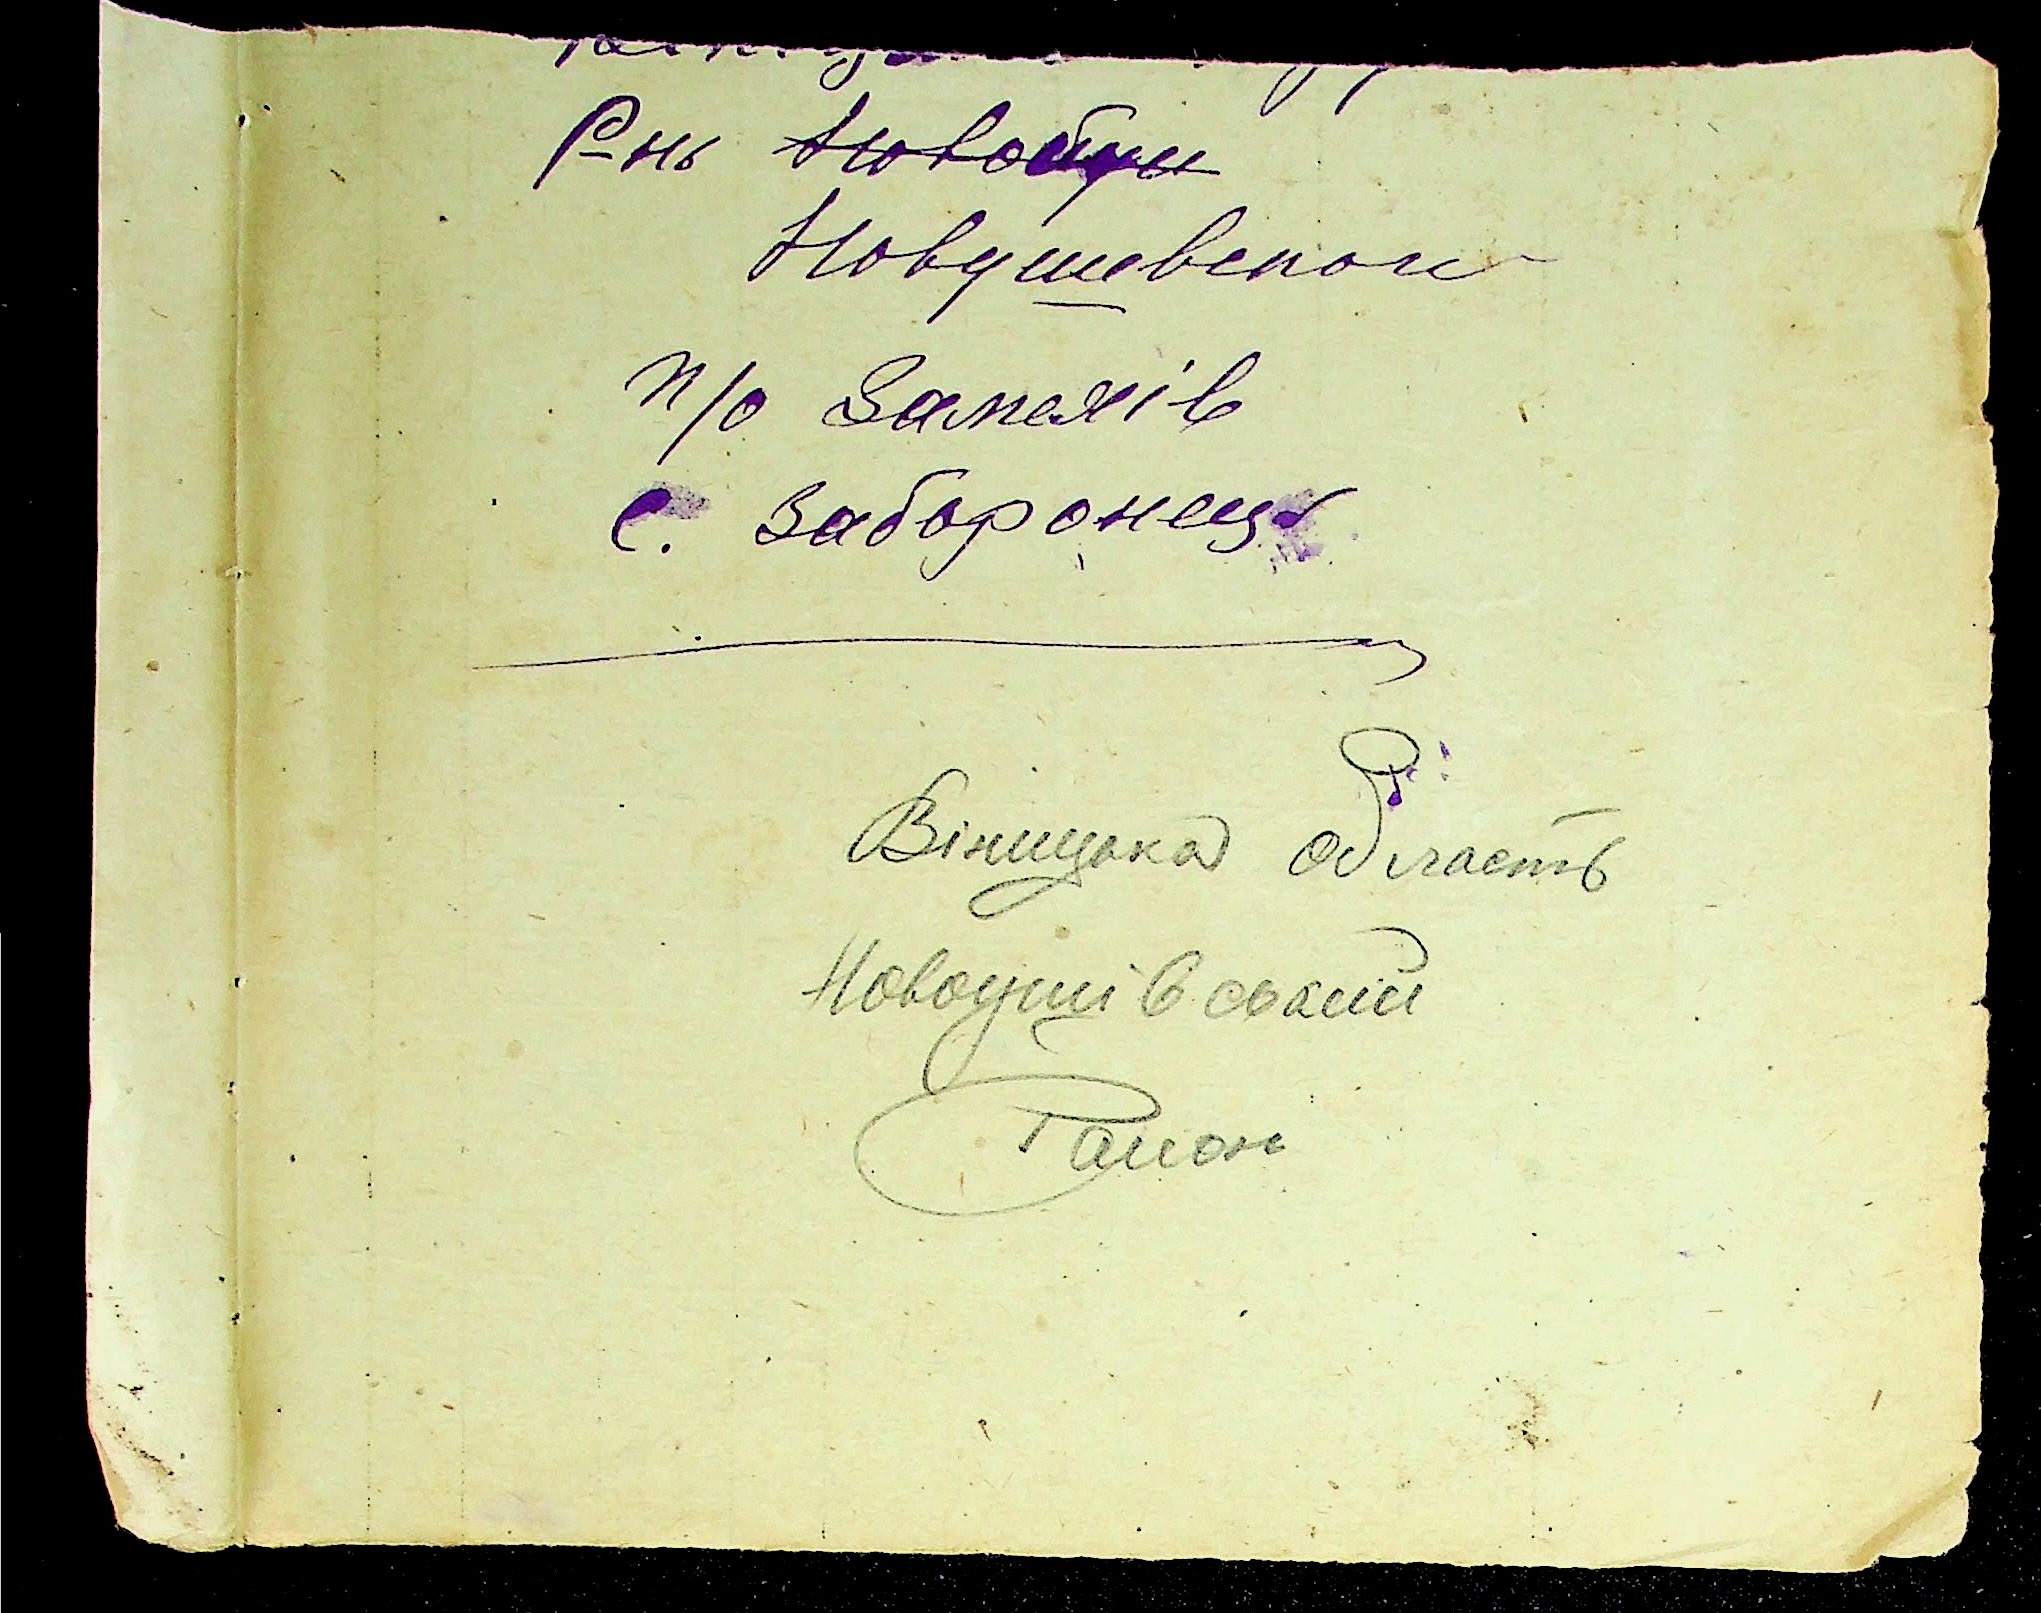 Р-нь Новоуш
Новушевекои
п/о Замехів
С. Заборонець
Віницька область
Новоушівський
Район